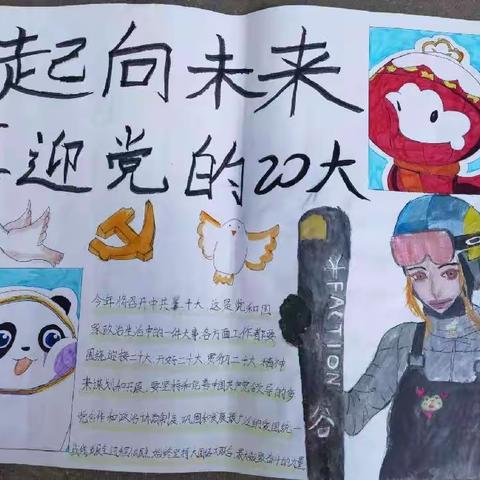 起向未来
迎党的20大
今年将召开中共第二十大,这是党和国
家政治生活中的一件大事,各方面工作都要
围绕迎接二十大,开好二十大,贯彻二十大精神
来谋划和开展,要坚持和完善中国共产党领导的多
党合作和政治协商制度,巩固和发展最广泛的爱国统一
战线
*FACTION
谷